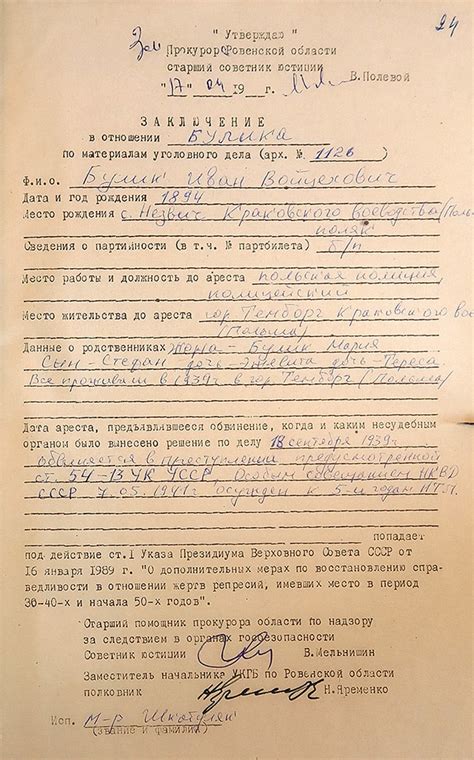 24
" Утверждаю "
Зам Прокурор Ровенской области
старший советник юстиции
В.Полевой
"17" 04 19 г.
ЗАКЛЮЧЕНИЕ
в отношении Булика
по материалам уголовного дела (арх. № 1126)
Ф.и.о. Булик Иван Войцехович
Дата и год рождения 1894
Место рождения с. Незвич Краковского воеводства/Поль
поляк
Сведения о партийности (в т.ч. № партбилета) б/п
Место работы и должность до ареста польская полиция,
полицейский
Место жительства до ареста гор. Темборг Краковского вое
(Польша)
Данные о родственниках Жена - Булик Мария
Сын-Стефан дочь-Эльжвита дочь-Тереса
Все проживали в 1939г в гор. Темборг (Польша)
Дата ареста, предъявлявшееся обвинение, когда и каким несудебным
органом было вынесено решение по делу 18 сентября 1939г
обвиняется в преступлении предусмотренной
ст. 54-13 УК УССР, Особым совещанием НКВД
СССР 7.05.1941г осужден к 5-и годам ИТЛ.
попадает
под действие ст.I Указа Президиума Верховного Совета СССР от
16 января 1989 г "О дополнительных мерах по восстановлению спра-
ведливости в отношении жертв репресий, имевших место в период
30-40-х и начала 50-х годов".
Старший помощник прокурора области по надзору
за следствием в органах госбезопасности
Советник юстиции В.Мельнишин
Заместитель начальника УКГБ по Ровенской области
полковник Н.Яременко
Исп. м-р
(звание и фамилия)